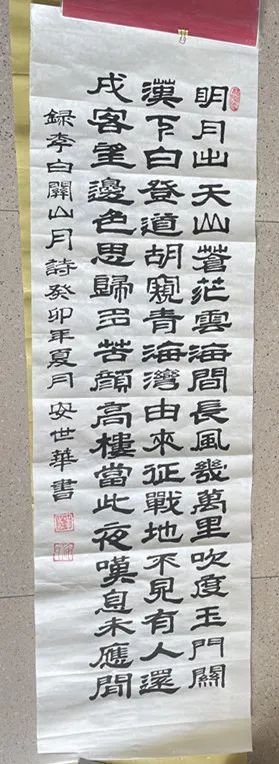 明月出天山蒼茫雲海間長風幾萬里吹度玉門關
漢下白登道胡窺青海灣由來征戰地不見有人還
戍客望邊色思歸多苦顏高樓當此夜嘆息未應閒
録李白關山月詩癸卯年夏月安世華書